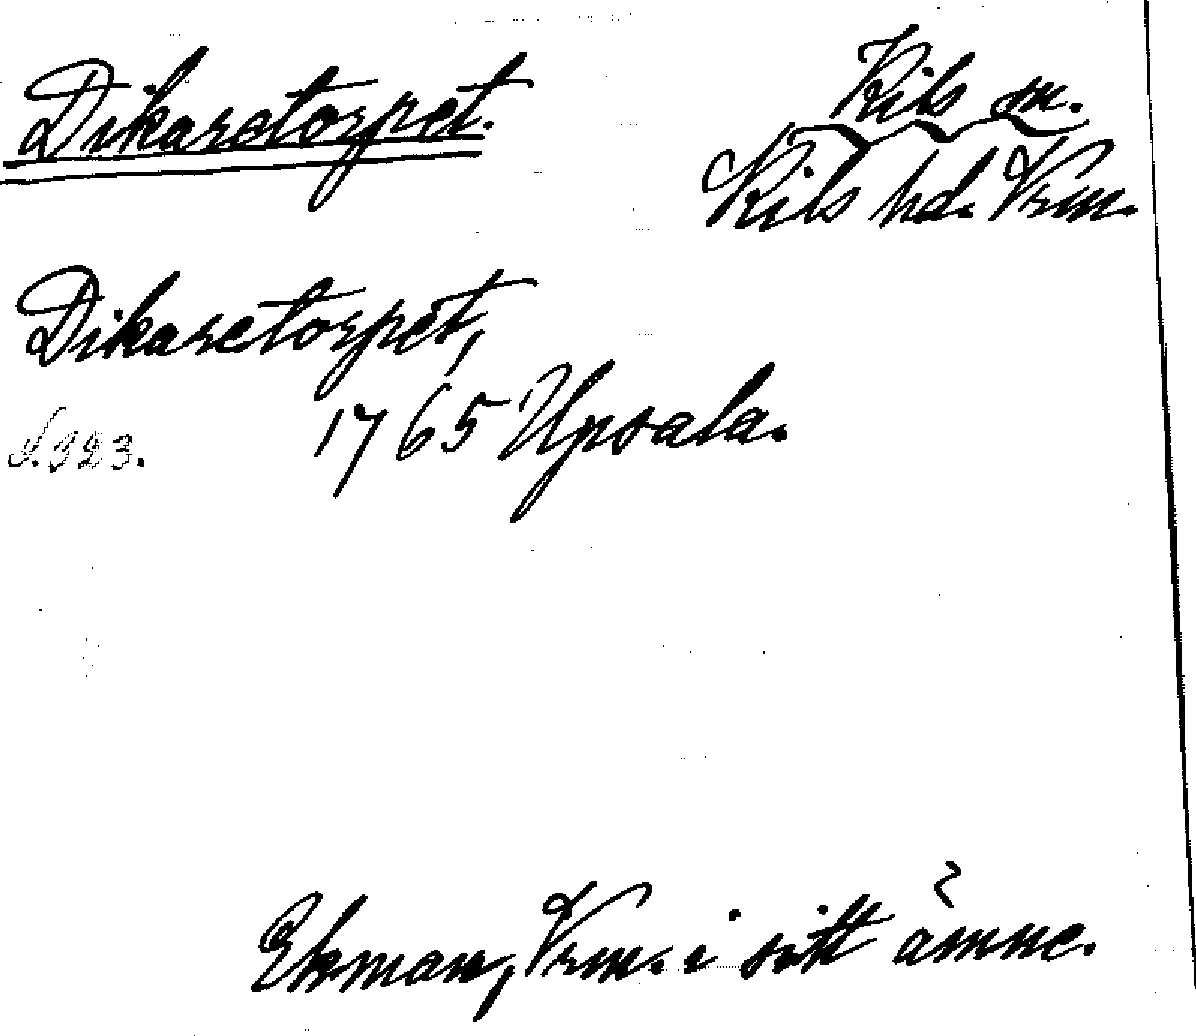 Dikaretorpet.
Kils sn.
Kils hd. Vrm.
Dikaretorpet,
1765 Upsala.
S. 323.
Ekman, Vrm. i sitt ämne.